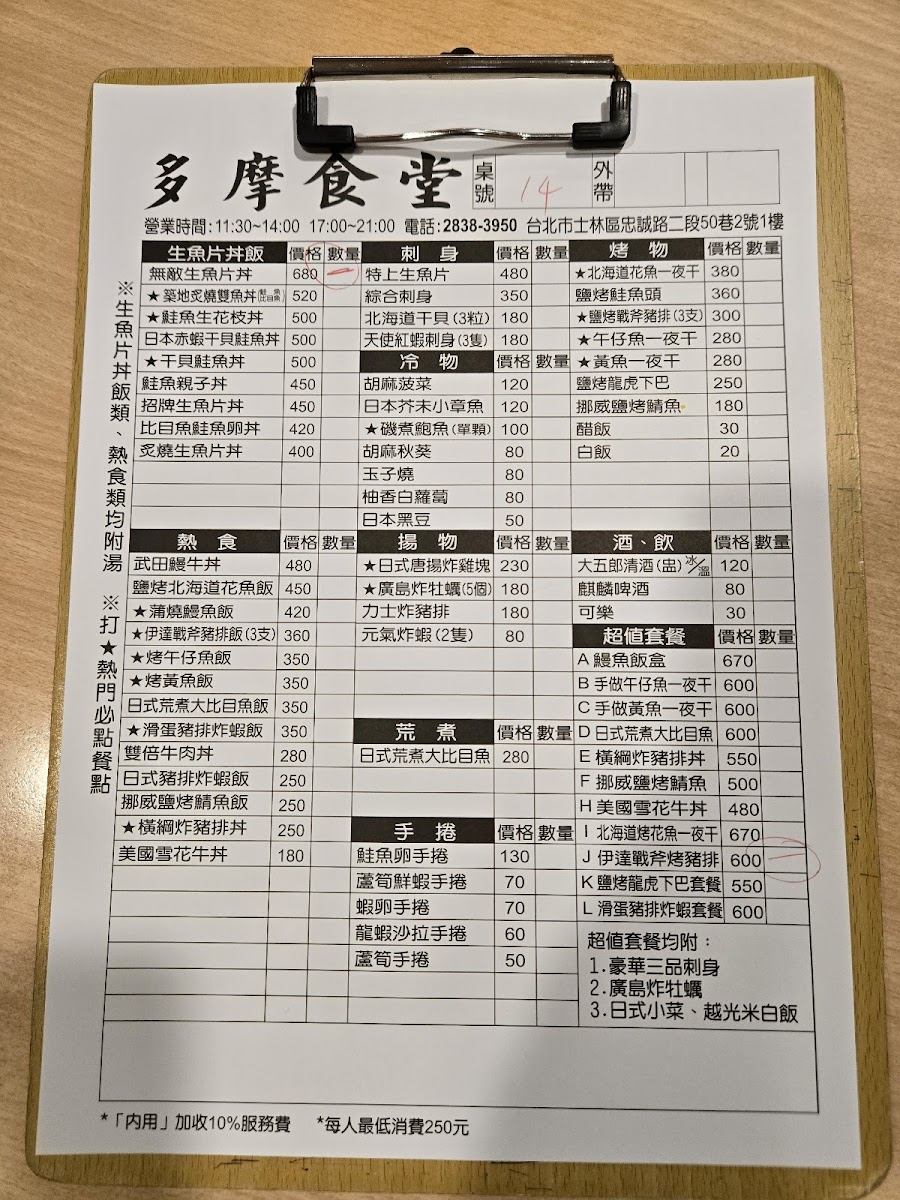 多摩食堂 桌號 14 外帶
營業時間:11:30~14:00 17:00~21:00 電話:2838-3950 台北市士林區忠誠路二段50巷2號1樓
※生魚片丼飯類、熱食類均附湯 ※打★熱門必點餐點
生魚片丼飯 價格 數量
無敵生魚片丼 680 一
★築地炙燒雙魚丼 520
★鮭魚生花枝丼 500
日本赤蝦干貝鮭魚丼 500
★干貝鮭魚丼 500
鮭魚親子丼 450
招牌生魚片丼 450
比目魚鮭魚卵丼 420
炙燒生魚片丼 400
刺身 價格 數量
特上生魚片 480
綜合刺身 350
北海道干貝(3粒) 180
天使紅蝦刺身(3隻) 180
冷物 價格 數量
胡麻菠菜 120
日本芥末小章魚 120
★磯煮鮑魚(單顆) 100
胡麻秋葵 80
玉子燒 80
柚香白蘿蔔 80
日本黑豆 50
烤物 價格 數量
★北海道花魚一夜干 380
鹽烤鮭魚頭 360
★鹽烤戰斧豬排(3支) 300
★午仔魚一夜干 280
★黃魚一夜干 280
鹽烤龍虎下巴 250
挪威鹽烤鯖魚 180
醋飯 30
白飯 20
熱食 價格 數量
武田鰻牛丼 480
鹽烤北海道花魚飯 450
★蒲燒鰻魚飯 420
★伊達戰斧豬排飯(3支) 360
★烤午仔魚飯 350
★烤黃魚飯 350
日式荒煮大比目魚飯 350
★滑蛋豬排炸蝦飯 350
雙倍牛肉丼 280
日式豬排炸蝦飯 250
挪威鹽烤鯖魚飯 250
★橫綱炸豬排丼 250
美國雪花牛丼 180
揚物 價格 數量
★日式唐揚炸雞塊 230
★廣島炸牡蠣(5個) 180
力士炸豬排 180
元氣炸蝦(2隻) 80
荒煮 價格 數量
日式荒煮大比目魚 280
手捲 價格 數量
鮭魚卵手捲 130
蘆筍鮮蝦手捲 70
蝦卵手捲 70
龍蝦沙拉手捲 60
蘆筍手捲 50
酒、飲 價格 數量
大五郎清酒(盅)冰/溫 120
麒麟啤酒 80
可樂 30
超值套餐 價格 數量
A 鰻魚飯盒 670
B 手做午仔魚一夜干 600
C 手做黃魚一夜干 600
D 日式荒煮大比目魚 600
E 橫綱炸豬排丼 550
F 挪威鹽烤鯖魚 500
H 美國雪花牛丼 480
I 北海道烤花魚一夜干 670
J 伊達戰斧烤豬排 600 一
K 鹽烤龍虎下巴套餐 550
L 滑蛋豬排炸蝦套餐 600
超值套餐均附:
1.豪華三品刺身
2.廣島炸牡蠣
3.日式小菜、越光米白飯
*「內用」加收10%服務費 *每人最低消費250元